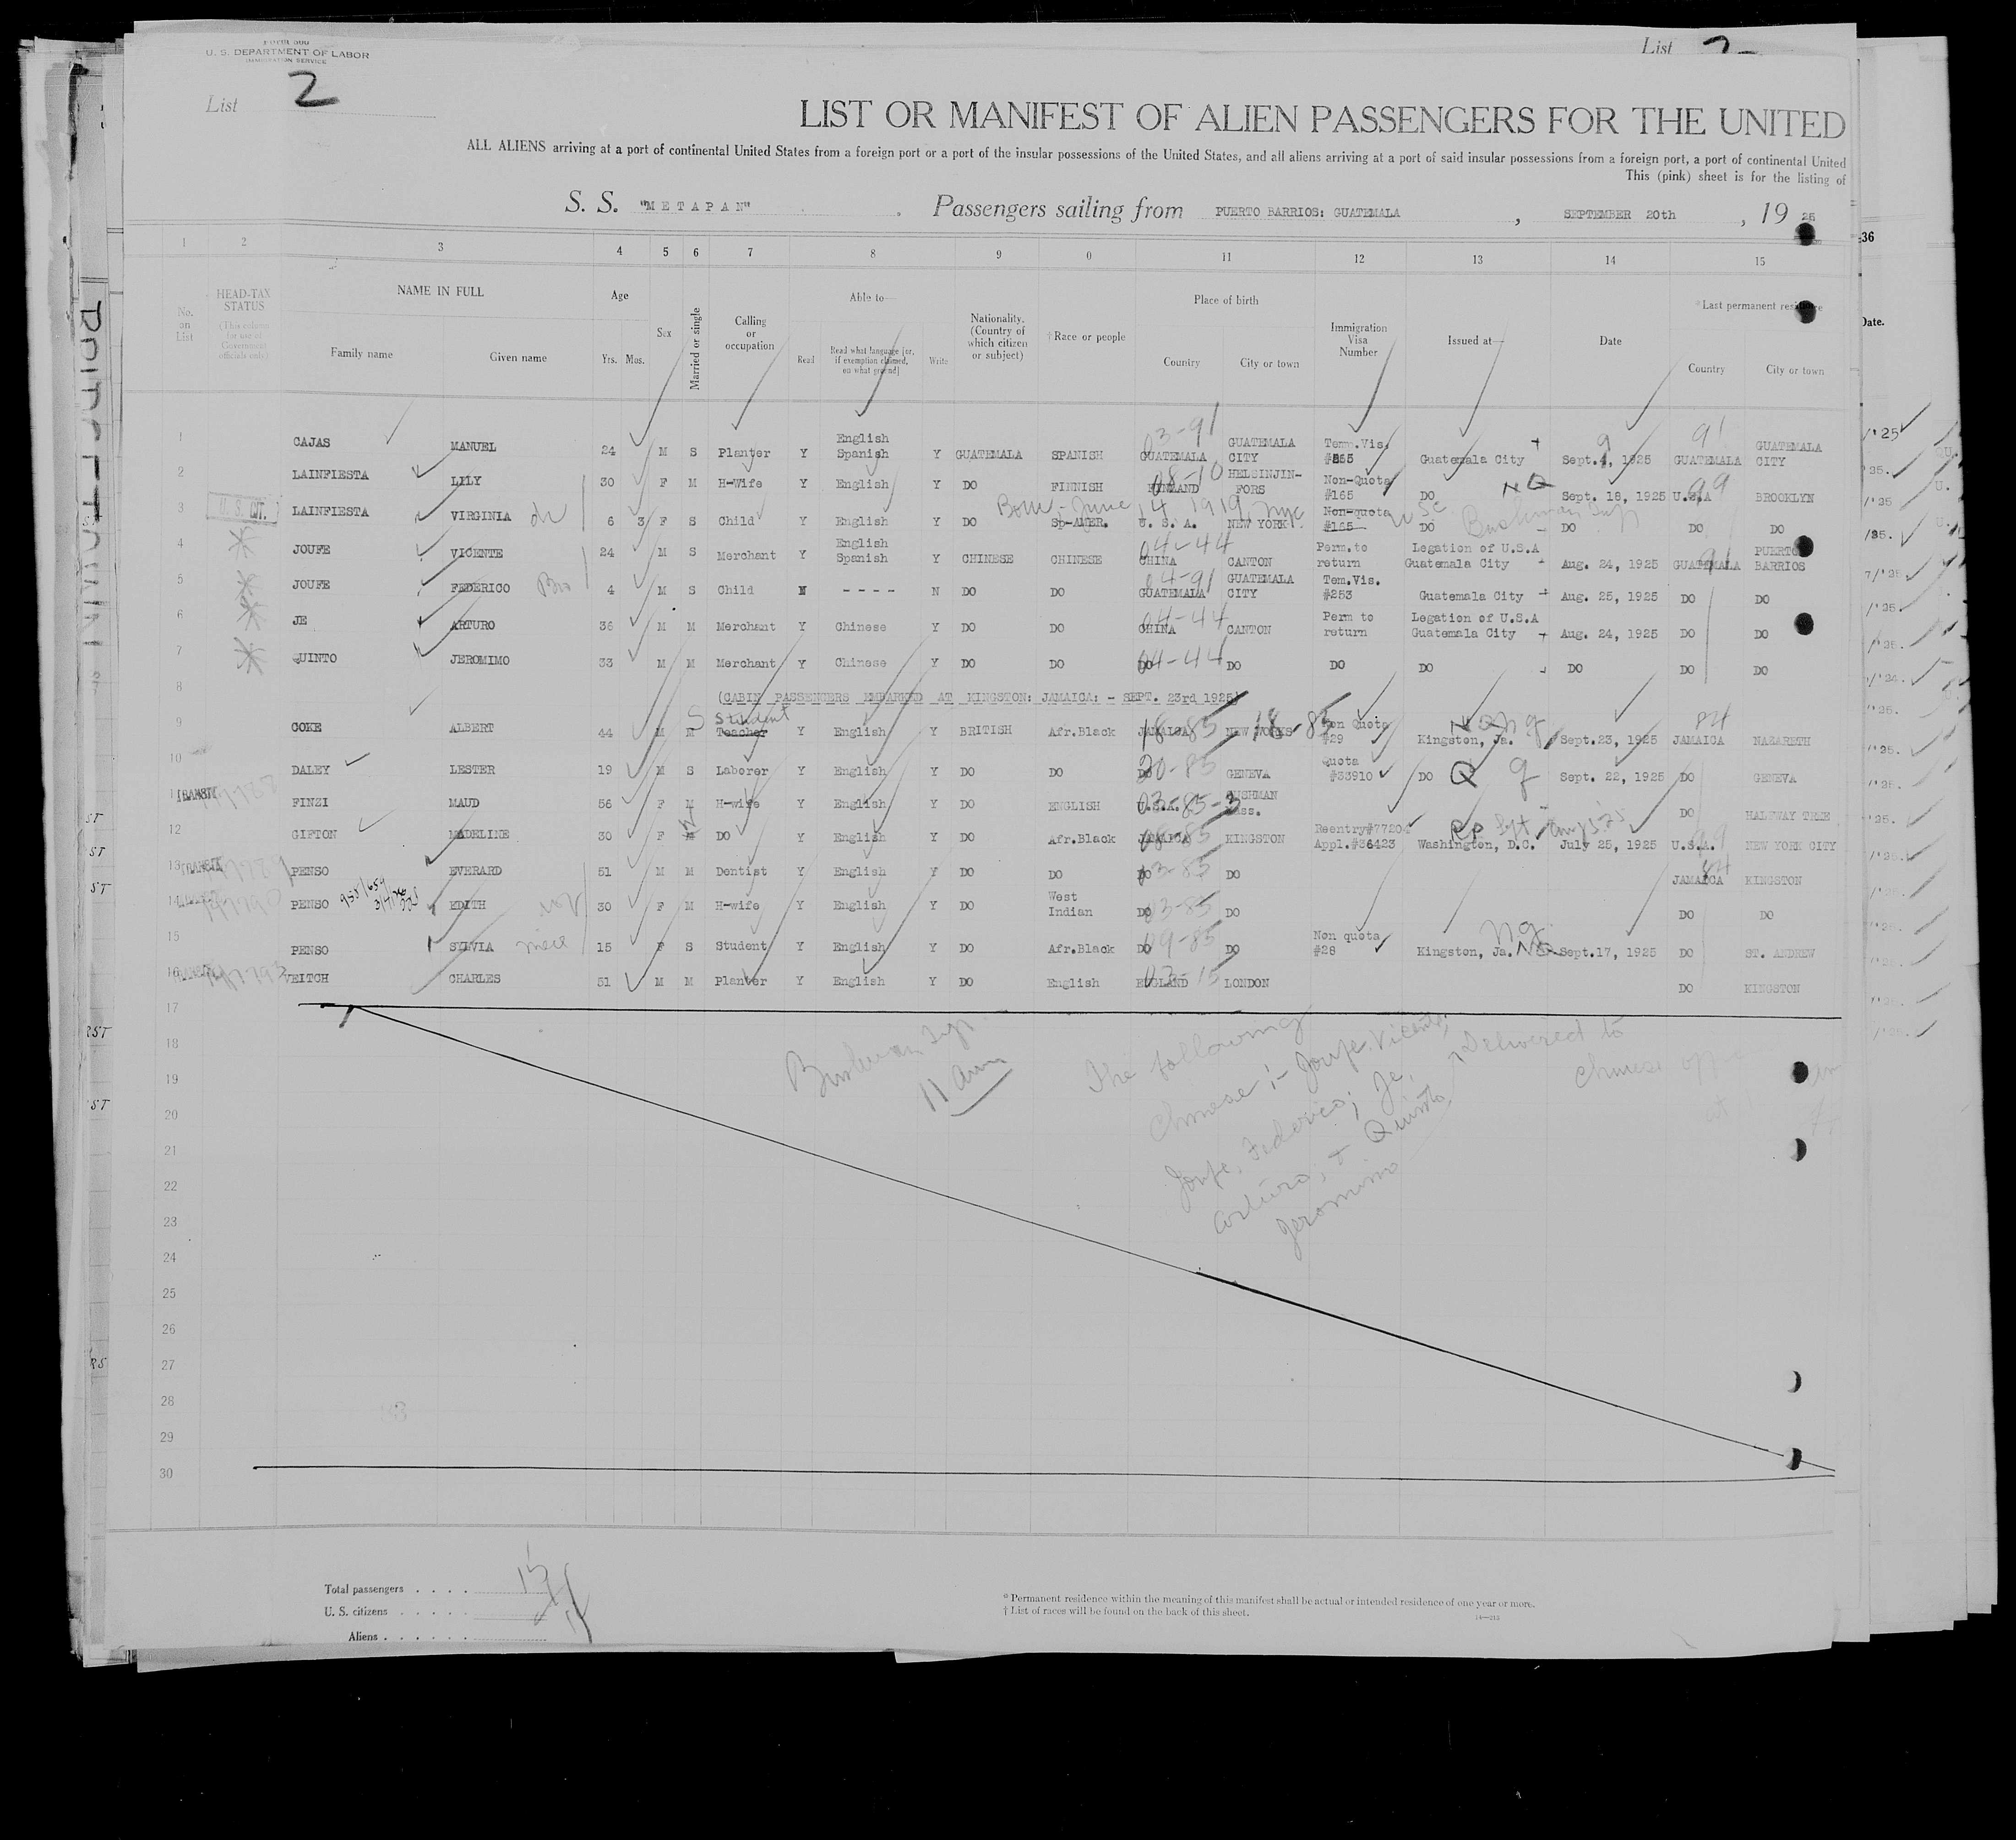 Form 500
U. S. DEPARTMENT OF LABOR
IMMIGRATION SERVICE
List 2
List 2
LIST OR MANIFEST OF ALIEN PASSENGERS FOR THE UNITED
ALL ALIENS arriving at a port of continental United States from a foreign port or a port of the insular possessions of the United States, and all aliens arriving at a port of said insular possessions from a foreign port, a port of continental United
This (pink) sheet is for the listing of
S. S. "METAPAN" , Passengers sailing from PUERTO BARRIOS: GUATEMALA , SEPTEMBER 20th , 19 25
1 2 3 4 5 6 7 8 9 0 11 12 13 14 15
No. on List
HEAD-TAX STATUS (This column for use of Government officials only)
NAME IN FULL
Family name
Given name
Age
Yrs. Mos.
Sex
Married or single
Calling or occupation
Able to—
Read
Read what language [or, if exemption claimed, on what ground]
Write
Nationality. (Country of which citizen or subject)
†Race or people
Place of birth
Country
City or town
Immigration Visa Number
Issued at—
Date
*Last permanent residence
Country
City or town
1 CAJAS MANUEL 24 M S Planter Y English Spanish Y GUATEMALA SPANISH GUATEMALA 03-91 GUATEMALA CITY Tem.Vis. Guatemala City Sept. 1925 GUATEMALA 91 GUATEMALA CITY
2 LAINFIESTA LILY 30 F M H-Wife Y English Y DO FINNISH FINLAND 08-10 HELSINJINFORS Non-Quota #165 DO NQ Sept. 18, 1925 U.S.A 99 BROOKLYN
3 U. S. CIT. LAINFIESTA VIRGINIA 6 3 F S Child Y English Y DO Sp-AMER. U. S. A. NEW YORK Non-quota #165 DO DO DO DO
Born - June 14 1919, nyc USC Bushman Insp
4 JOUFE VICENTE 24 M S Merchant Y English Spanish Y CHINESE CHINESE CHINA 04-44 CANTON Perm.to return Legation of U.S.A Guatemala City Aug. 24, 1925 GUATEMALA 91 PUERTO BARRIOS
5 JOUFE FEDERICO Bro 4 M S Child N ---- N DO DO GUATEMALA 04-91 GUATEMALA CITY Tem.Vis. #253 Guatemala City Aug. 25, 1925 DO DO
6 JE ARTURO 36 M M Merchant Y Chinese Y DO DO CHINA 04-44 CANTON Perm to return Legation of U.S.A Guatemala City Aug. 24, 1925 DO DO
7 QUINTO JEROMIMO 33 M M Merchant Y Chinese Y DO DO DO 04-44 DO DO DO DO DO DO
8 (CABIN PASSENGERS EMBARKED AT KINGSTON: JAMAICA: - SEPT. 23rd 1925)
9 COKE ALBERT 44 M M S Teacher Student Y English Y BRITISH Afr.Black JAMAICA 18-85 NEW WORKS 18-85 Non Quota #29 Kingston, Ja. Sept.23, 1925 JAMAICA 84 NAZARETH
10 DALEY LESTER 19 M S Laborer Y English Y DO DO DO 20-85 GENEVA Quota #33910 DO Q Sept. 22, 1925 DO GENEVA
11 TRANSIT FINZI MAUD 56 F M H-wife Y English Y DO ENGLISH U.S.A. 03-85-3 CUSHMAN Mass. DO HALFWAY TREE
12 GIFTON MADELINE 30 F M DO Y English Y DO Afr.Black JAMAICA 08-85 KINGSTON Reentry#77204 Appl.#36423 RP Washington, D.C. July 25, 1925 U.S.A. 99 NEW YORK CITY
13 TRANSIT PENSO EVERARD 51 M M Dentist Y English Y DO DO DO 03-85 DO JAMAICA 84 KINGSTON
14 PENSO EDITH 30 F M H-wife Y English Y DO West Indian DO 03-85 DO DO DO
15 PENSO SYLVIA niece 15 F S Student Y English Y DO Afr.Black DO 09-85 DO Non quota #28 Kingston, Ja. NQ Sept.17, 1925 DO ST. ANDREW
16 VEITCH CHARLES 51 M M Planter Y English Y DO English ENGLAND 03-15 LONDON DO KINGSTON
17
18
19
20
21
22
23
24
25
26
27
28
29
30
Bushman Insp.
11 am
The following
Chinese :- Joufe, Vicente,
Joufe, Federico; Je,
Arturo; + Quinto,
Jeromimo
Delivered to
Chinese
at
Total passengers . . . . 15
U. S. citizens . . . . .
Aliens . . . . . .
* Permanent residence within the meaning of this manifest shall be actual or intended residence of one year or more.
† List of races will be found on the back of this sheet.
36
Date.